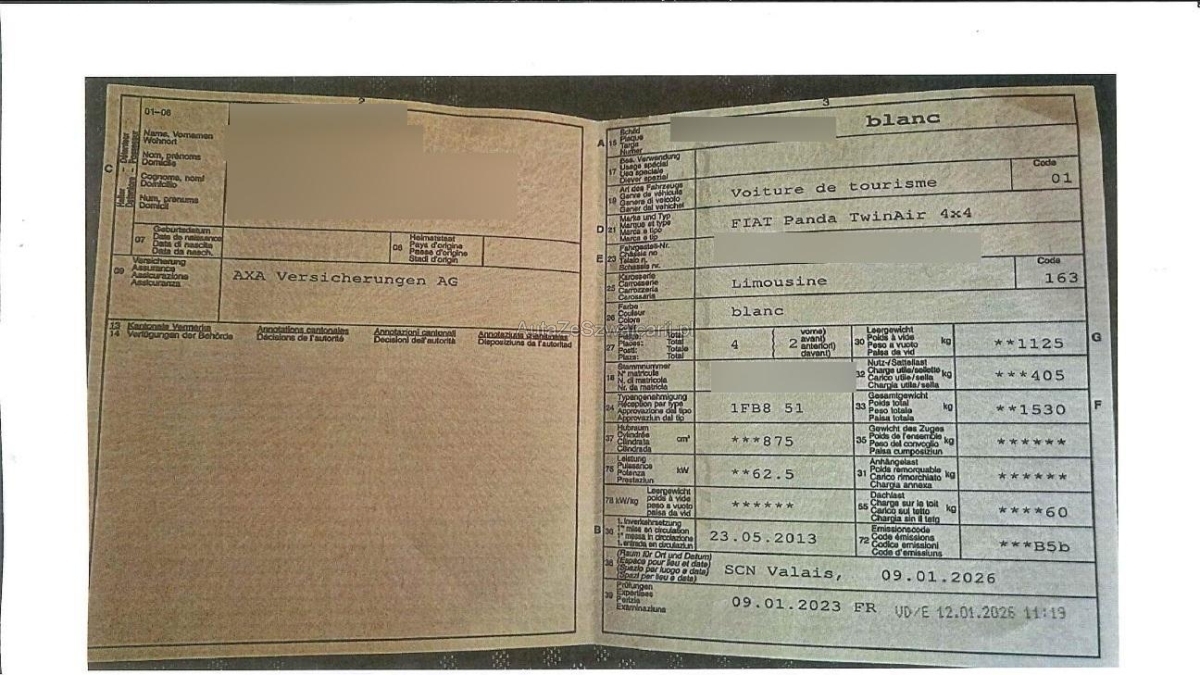 2
01-06
Name, Vornamen
Wohnort
Nom, prénoms
Domicile
Cognome, nomi
Domicilio
Num, prenums
Domicil
C
Halter - Détenteur
Detentore - Possessur
07
Geburtsdatum
Date de naissance
Data di nascita
Data da nasch.
08
Heimatstaat
Pays d'origine
Paese d'origine
Stadi d'origin
09
Versicherung
Assurance
Assicurazione
Assicuranza
AXA Versicherungen AG
13
14
Kantonale Vermerke
Verfügungen der Behörde
Annotations cantonales
Décisions de l'autorité
Annotazioni cantonali
Decisioni dell'autorità
Annotaziuns chantunalas
Dispoziziuns da l'autoritad
AutaZeSzwajcarii.pl
3
A 15
Schild
Plaque
Targa
Numer
blanc
17
Bes. Verwendung
Usage spécial
Uso speciale
Diever spezial
Code
19
Art des Fahrzeugs
Genre de véhicule
Genere di veicolo
Gener dal vehichel
Voiture de tourisme
01
D 21
Marke und Typ
Marque et type
Marca e tipo
Marca e tip
FIAT Panda TwinAir 4x4
E 23
Fahrgestell-Nr.
Châssis no
Telaio n.
Schassis nr.
25
Karosserie
Carrosserie
Carrozzeria
Carossaria
Limousine
Code
163
26
Farbe
Couleur
Colore
blanc
27
Plätze: Total
Places: Total
Posti: Totale
Plazs: Total
4
2
vorne)
avant)
anteriori)
davant)
30
Leergewicht
Poids à vide
Peso a vuoto
Paisa da vid
kg
**1125
G
18
Stammnummer
N° matricule
N. di matricola
Nr. da matricla
32
Nutz-/Sattellast
Charge utile/sellette
Carico utile/sella
Chargia utila/sella
kg
***405
24
Typengenehmigung
Réception par type
Approvazione del tipo
Approvaziun dal tip
1FB8 51
33
Gesamtgewicht
Poids total
Peso totale
Paisa totala
kg
**1530
F
37
Hubraum
Cylindrée
Cilindrata
Cilindrada
cm³
***875
35
Gewicht des Zuges
Poids de l'ensemble
Peso del convoglio
Paisa cumposiziun
kg
******
76
Leistung
Puissance
Potenza
Prestaziun
kW
**62.5
31
Anhängelast
Poids remorquable
Carico rimorchiato
Chargia annexa
kg
******
78 kW/kg
Leergewicht
poids à vide
peso a vuoto
paisa da vid
******
55
Dachlast
Charge sur le toit
Carico sul tetto
Chargia sin il tetg
kg
****60
B 36
1. Inverkehrsetzung
1re mise en circulation
1a messa in circolazione
1. entrada en circulaziun
23.05.2013
72
Emissionscode
Code émissions
Codice emissioni
Code d'emissiuns
***B5b
38
(Raum für Ort und Datum)
(Espace pour lieu et date)
(Spazio per luogo e data)
(Spazi per lieu e data)
SCN Valais, 09.01.2026
39
Prüfungen
Expertises
Perizie
Examinaziuns
09.01.2023 FR VD/E 12.01.2026 11:19